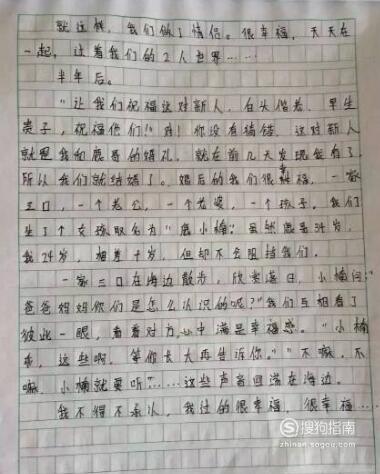 就这样，我们做了情侣。很幸福，天天在
一起，过着我们的2人世界……
半年后。
"让我们祝福这对新人，白头偕老，早生
贵子，祝福他们！"对！你没有猜错，这对新人
就是我和鹿哥的婚礼，就在前几天发现我有了，
所以我们就结婚了。婚后的我们很幸福，一家
三口，一个老公，一个老婆，一个孩子。我们
生了个女孩取名为"鹿小楠"虽然鹿哥34岁，
我24岁，相差十岁，但却不会阻挡我们。
一家三口在海边散步，欣赏落日，小楠问："
爸爸妈妈你们是怎么认识的呢？"我们互相看了
彼此一眼，看着对方心中满是幸福感。"小楠
乖，这些啊，等你长大再告诉你。""不嘛，不
嘛，小楠就要听"……这些声音回荡在海边。
我不得不承认，我过的很幸福，很幸福……
搜狗指南
zhinan.sogou.com